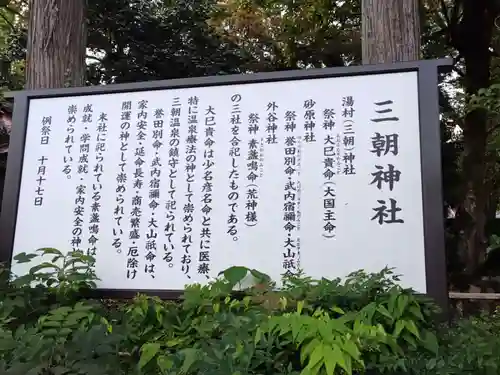 三朝神社
湯村(三朝)神社
祭神 大已貴命(大国主命)
砂原神社
祭神 誉田別命・武内宿禰命・大山祇命
外谷神社
祭神 素盞鳴命(荒神様)
の三社を合祀したものである。
大已貴命は少名彦名命と共に医療、
特に温泉療法の神として崇められており、
三朝温泉の鎮守として祀られている。
誉田別命・武内宿禰命・大山祇命は、
家内安全・延命長寿・商売繁盛・厄除け
開運の神として崇められている。
末社に祀られている素盞鳴命は
成就・学問成就・家内安全の神
崇められている。
例祭日 十月十七日